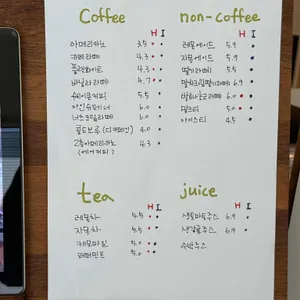 Coffee
H I
아메리카노 3.5
카페라떼 4.3
플랫화이트 4.3
바닐라라떼 4.7
5.5
아인슈페너 6.0
크림라떼 6.0
콜드브루 (디카페인) 4.0
2층아메리카노 4.3
(에어커피)
non-coffee
H I
레몬에이드 5.9
자몽에이드 5.9
딸기라떼 5.5
6.9
6.0
밀크티 5.0
아이스티 4.5
tea
H I
레몬차 5.5
자몽차 5.5
캐모마일 5.0
페퍼민트 5.0
juice
H I
생토마토주스 6.9
생감귤주스 6.9
수박주스